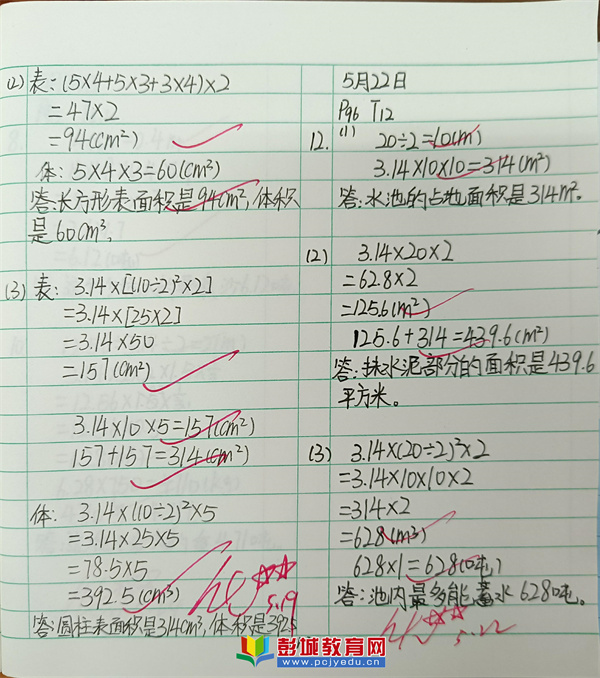 (2) 表：(5×4+5×3+3×4)×2
=47×2
=94(cm²)
体：5×4×3=60(cm³)
答：长方形表面积是94cm²，体积
是60cm³。
(3) 表：3.14×[(10÷2)²×2]
=3.14×[25×2]
=3.14×50
=157(cm²)
3.14×10×5=157(cm²)
157+157=314(cm²)
体：3.14×(10÷2)²×5
=3.14×25×5
=78.5×5
=392.5(cm³)
答：圆柱表面积是314cm³，体积是392.5
5.19
5月22日
P96 T12
12. (1) 20÷2=10(m)
3.14×10×10=314(m²)
答：水池的占地面积是314m²。
(2) 3.14×20×2
=62.8×2
=125.6(m²)
125.6+314=439.6(m²)
答：抹水泥部分的面积是439.6
平方米。
(3) 3.14×(20÷2)²×2
=3.14×10×10×2
=314×2
=628(m³)
628×1=628(吨)
答：池内最多能蓄水628吨。
5.22
彭城教育网
www.pcjyedu.cn